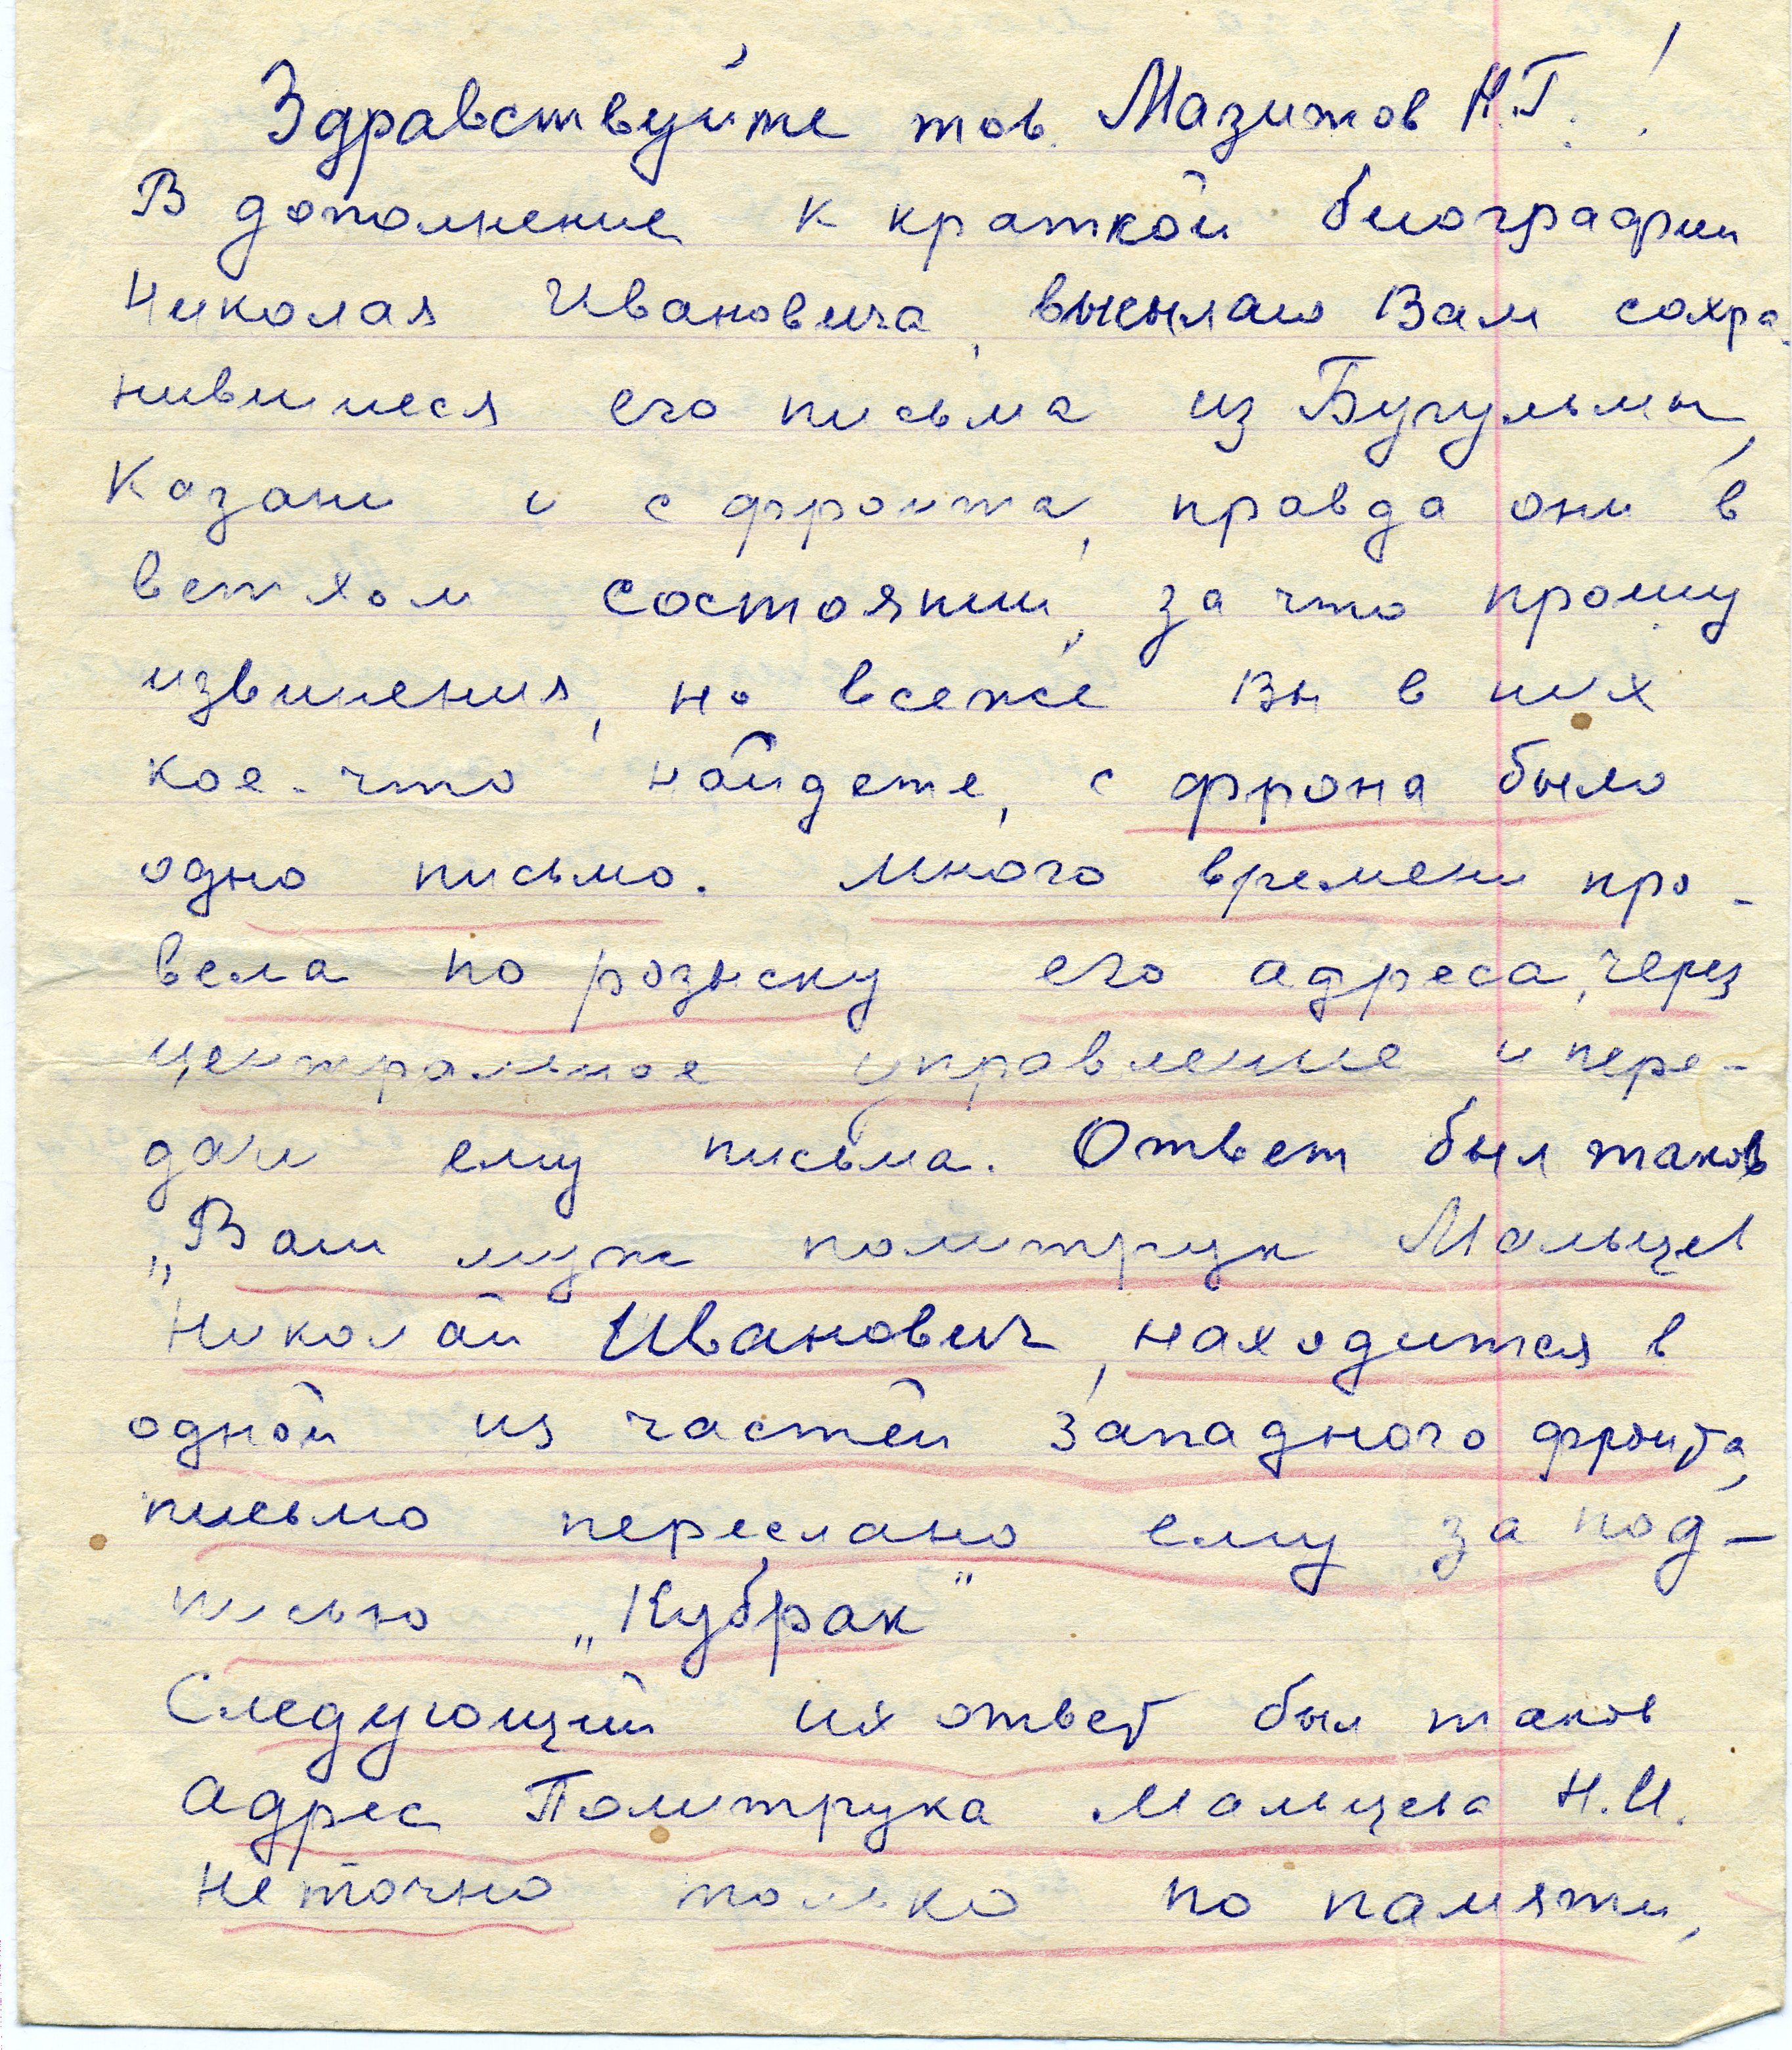 Здравствуйте тов. Мазитов Н.Г.!
В дополнение к краткой биографии
Николая Ивановича, высылаю Вам сохра-
нившиеся его письма из Бугульмы,
Казани и с фронта, правда они в
ветхом состоянии, за что прошу
извинения, но всеже Вы в них
кое-что найдете, с фрона было
одно письмо. Много времени про-
вела по розыску его адреса, через
центральное управление и пере-
дачи ему письма. Ответ был таков
„Ваш муж политрук Мальцев
Николай Иванович, находится в
одной из частей Западного фронта,
письмо переслано ему за под-
писью „Кубрак"
Следующий их ответ был таков
адрес Политрука Мальцева Н.И.
неточно только по памяти,